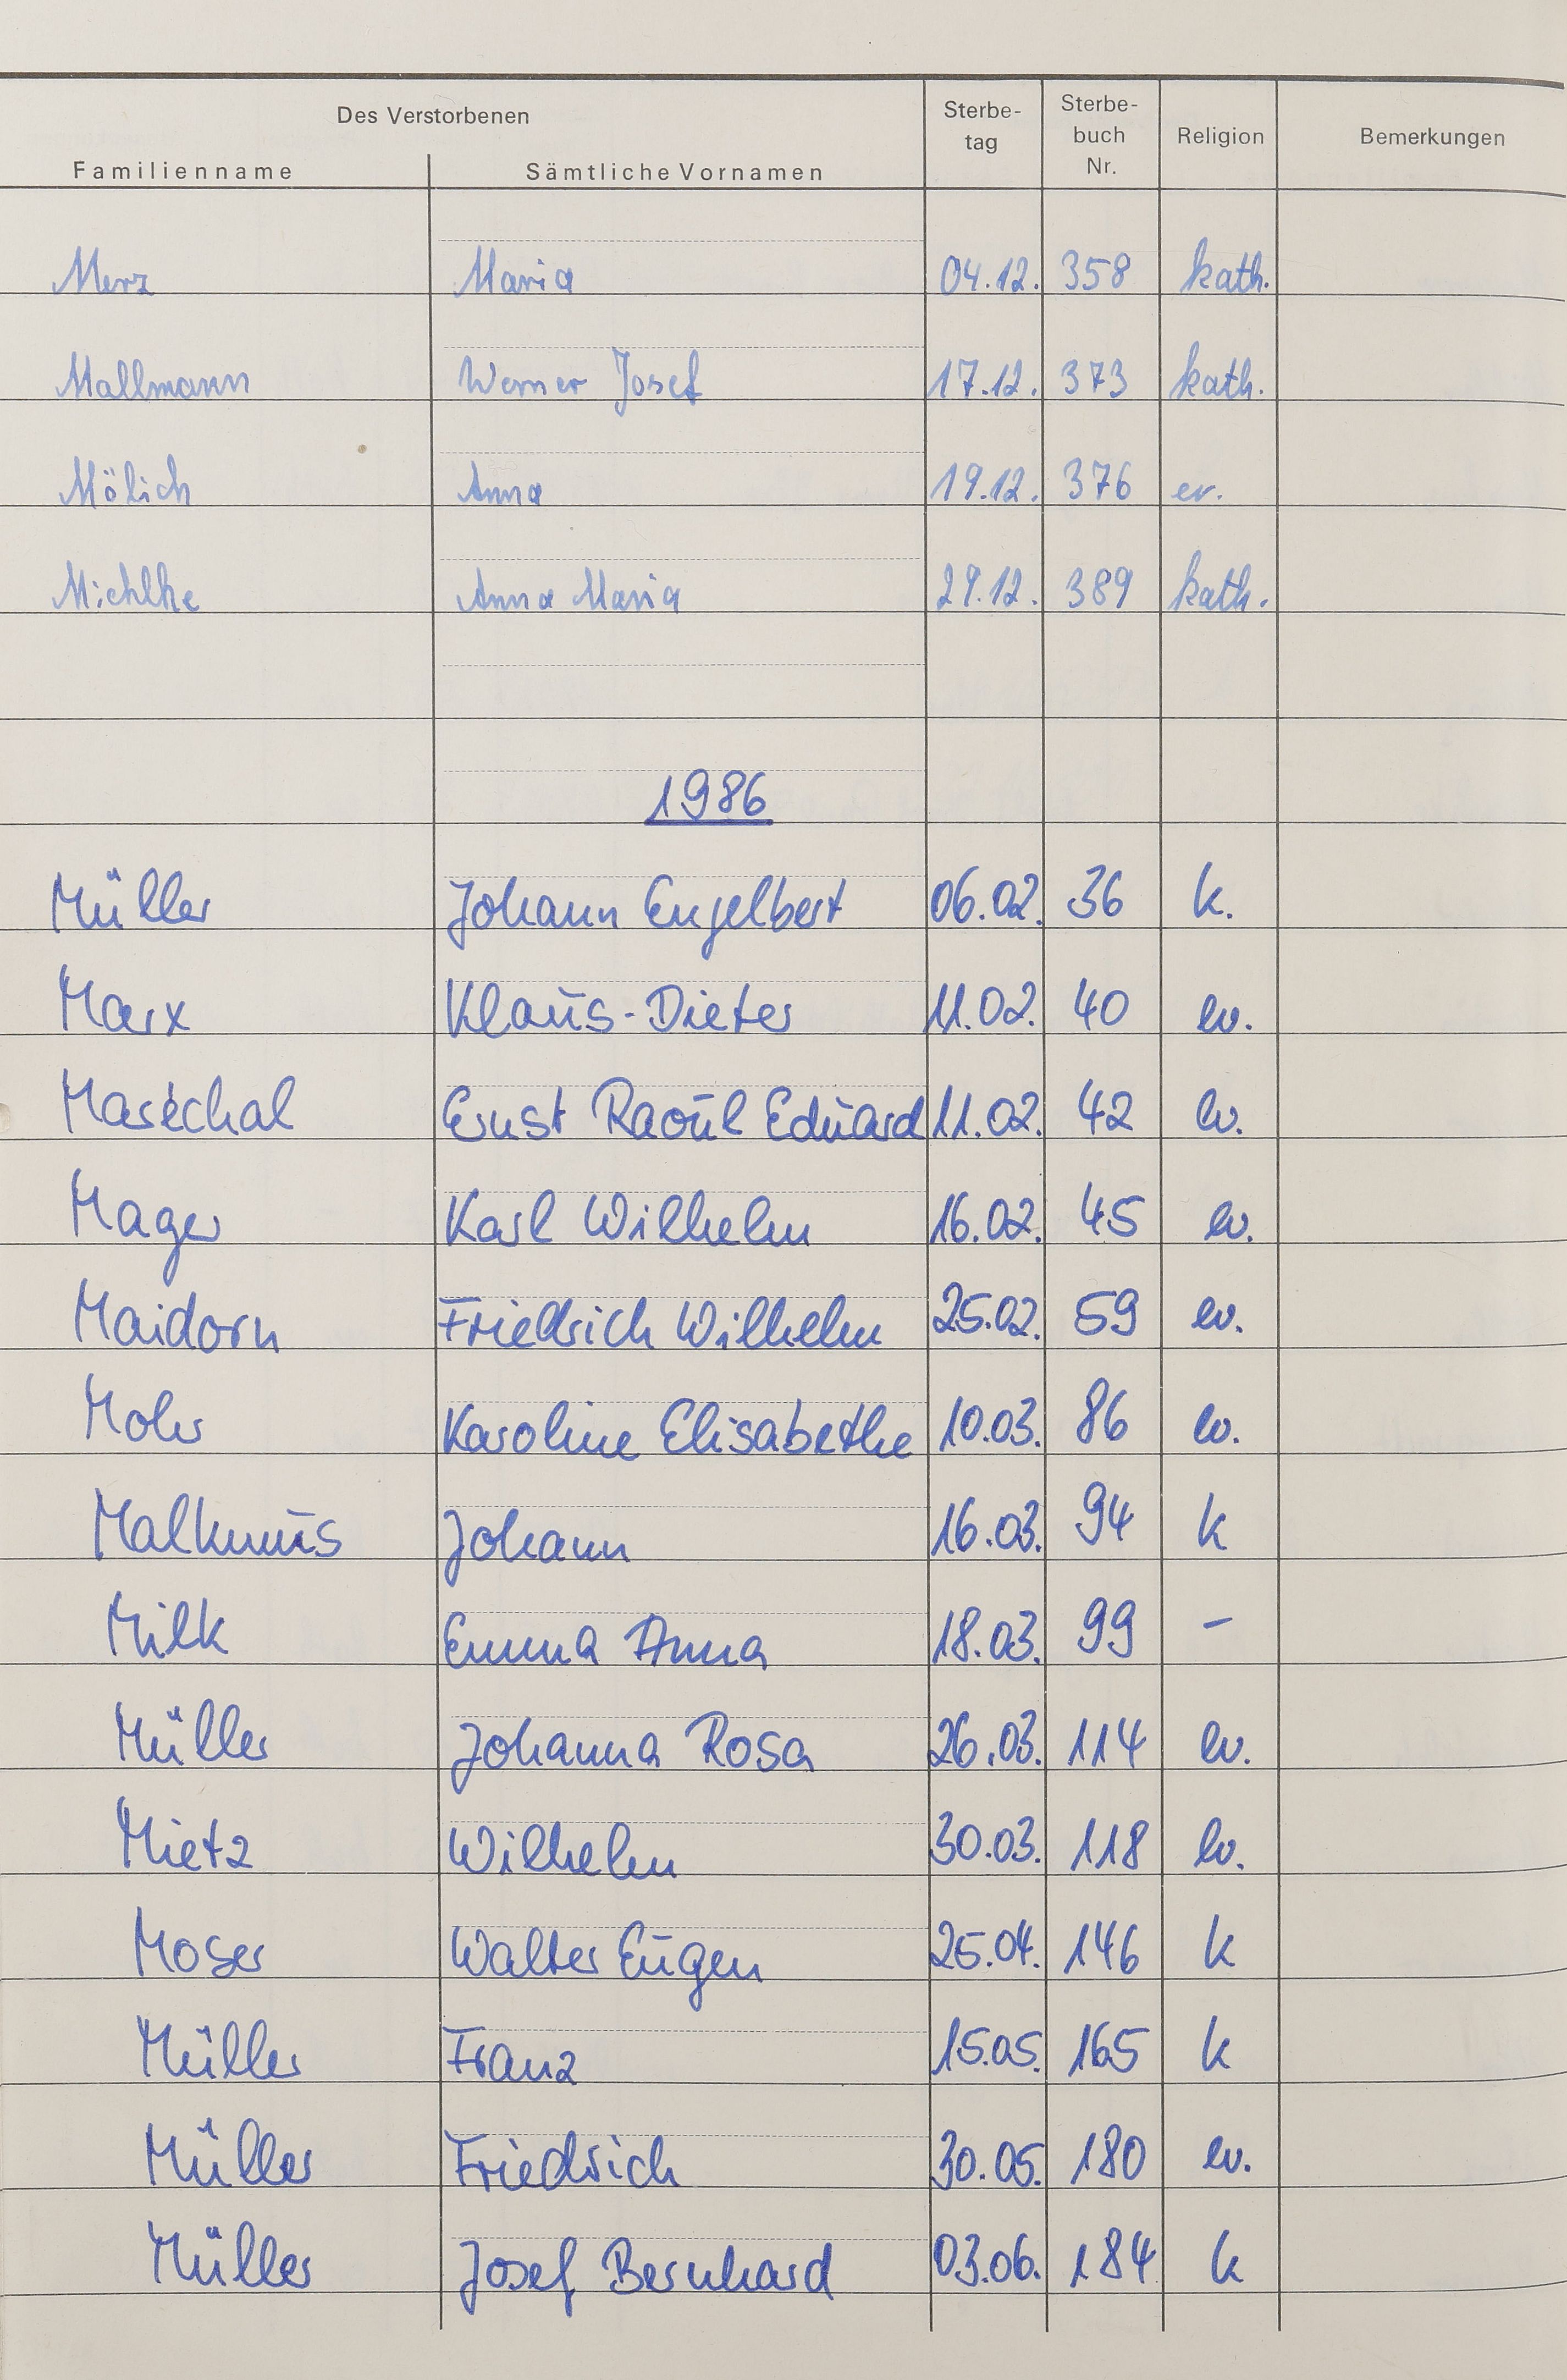 Des Verstorbenen
Familienname Sämtliche Vornamen Sterbe-tag Sterbe-buch Nr. Religion Bemerkungen
Merz Maria 04.12. 358 kath.
Mallmann Werner Josef 17.12. 373 kath.
Mölich Anna 19.12. 376 ev.
Michlke Anna Maria 29.12. 389 kath.
1986
Müller Johann Engelbert 06.02. 36 k.
Marx Klaus-Dieter 11.02. 40 ev.
Maréchal Ernst Raoul Eduard 11.02. 42 ev.
Mager Karl Wilhelm 16.02. 45 ev.
Maidorn Friedrich Wilhelm 25.02. 59 ev.
Mohr Karoline Elisabethe 10.03. 86 ev.
Malkmus Johann 16.03. 94 k
Milk Emma Anna 18.03. 99 –
Müller Johanna Rosa 26.03. 114 ev.
Mietz Wilhelm 30.03. 118 ev.
Moser Walter Eugen 25.04. 146 k
Müller Franz 15.05. 165 k
Müller Friedrich 30.05. 180 ev.
Müller Josef Bernhard 03.06. 184 k